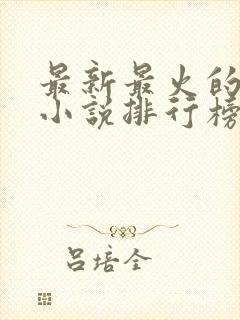 最新最火的
小说排行榜
吕培全